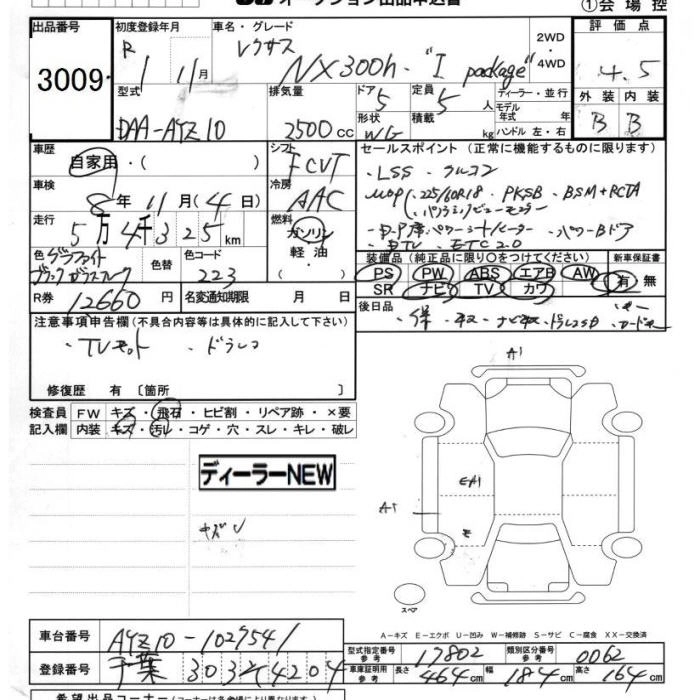 オークション出品申込書
①会場控
出品番号
3009
初度登録年月
R 1 11月
車名・グレード
レクサス
NX300h "I package"
2WD・4WD
評価点
4.5
型式
DAA-AYZ10
排気量
2500cc
ドア
5
定員
5人
ディーラー・並行
モデル年式 年
形状
WG
積載
kg
ハンドル 左・右
外装 内装
B B
車歴
自家用・( )
シフト
FCVT
車検
8年11月(4日)
冷房
AAC
走行
5万4千325km
燃料
ガソリン
軽油
・
色 グラファイト
ブラックガラスフレーク
色替
色コード
223
R券 12660円
名変通期限 月 日
セールスポイント (正常に機能するものに限ります)
・LSS・クルコン
MOP(・225/60R18・PKSB・BSM+RCTA
・パノラミックビューモニター
・D・P席パワーシートヒーター・パワーBドア
・DTV・ETC2.0
装備品(純正品に限り○をつけてください)
新車保証書
PS PW ABS エアB AW
SR ナビ TV カワ
有 無
後日品
注意事項申告欄(不具合内容等は具体的に記入して下さい)
・TVキット ・ドラレコ
修復歴 有 〔箇所 〕
検査員 FW キズ・飛石・ヒビ割・リペア跡・×要
記入欄 内装 キズ・汚れ・コゲ・穴・スレ・キレ・破レ
ディーラーNEW
キズ
A1
EA1
A1
スペア
A-キズ E-エクボ U-凹み W-補修跡 S-サビ C-腐食 XX-交換済
車台番号
AYZ10-1027541
登録番号
千葉 303 そ 4204
型式指定番号
参考
17802
類別区分番号
参考
0062
車庫証明用
参考
長さ 464cm 幅 184cm 高さ 164cm
希望出品コーナー